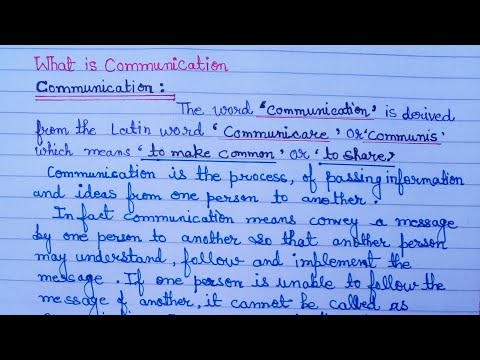 What is Communication
Communication :
The word 'communication' is derived
from the Latin word 'Communicare' or 'communis'
which means 'to make common' or 'to share'
Communication is the process, of passing information
and ideas from one person to another.
In fact communication means convey a message
by one person to another so that another person
may understand, follow and implement the
message. If one person is unable to follow the
message of another, it cannot be called as